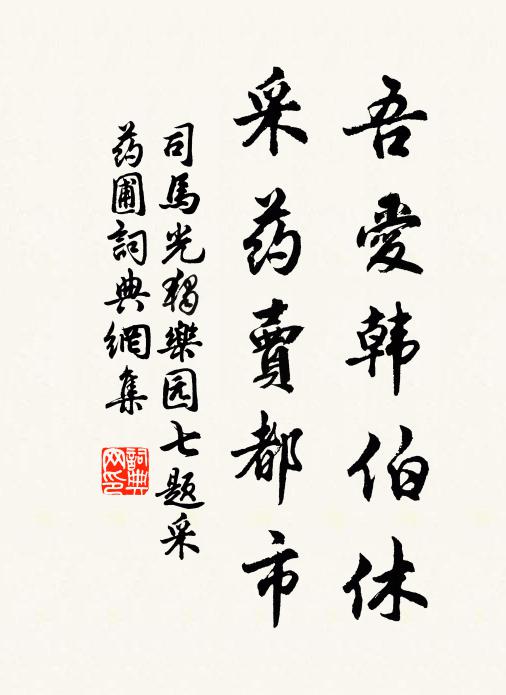 吾愛韩伯休
采药賣都市
司馬光獨樂园七题采
药圃詞典網集
詞典网印